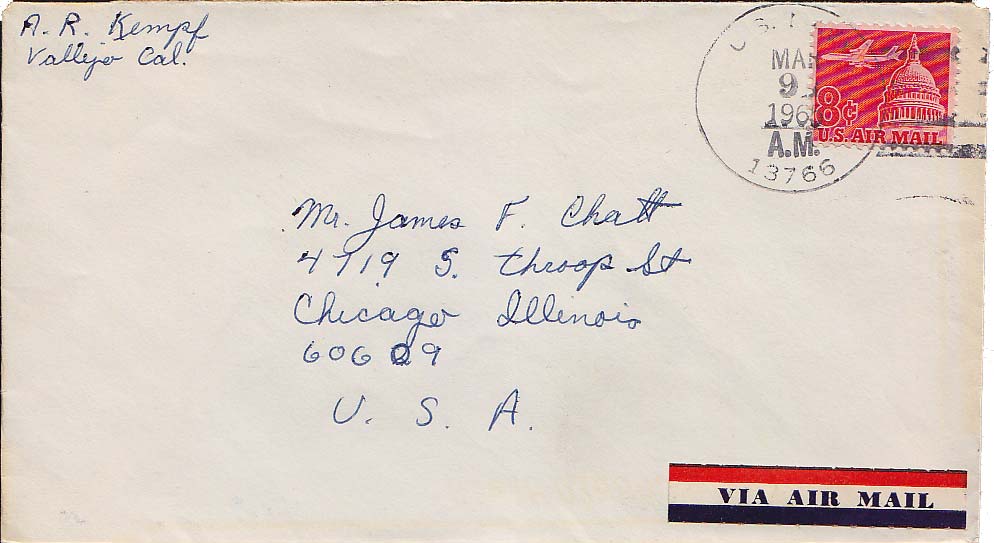 A. R. Kempf
Vallejo Cal.
U.S.
MAR
9
196
A.M.
13766
8¢
U.S. AIR MAIL
Mr. James F. Chatt
4719 S. Throop St
Chicago Illinois
60609
U. S. A.
VIA AIR MAIL